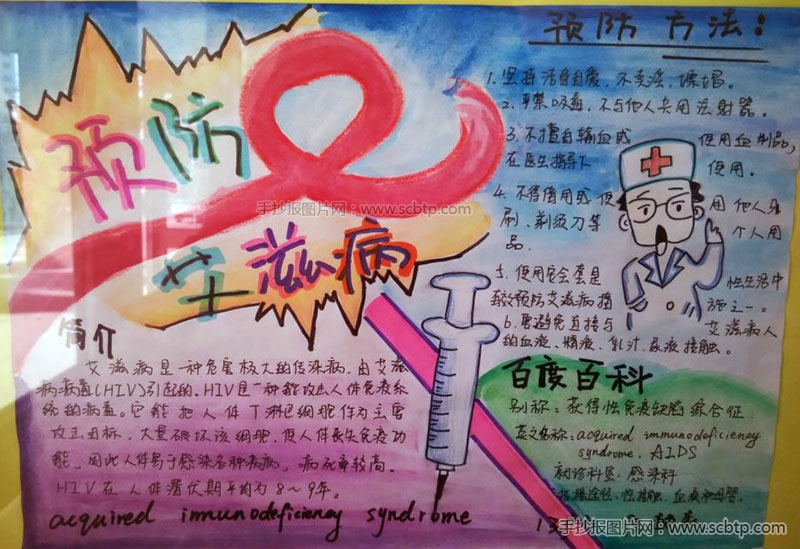 预防
艾滋病
手抄报图片网：www.scbtp.com
简介
艾滋病是一种危害极大的传染病，由艾滋
病病毒(HIV)引起的，HIV是一种能攻击人体免疫系
统的病毒。它能把人体T淋巴细胞作为主要
攻击目标，大量破坏该细胞，使人体丧失免疫功
能，因此人体易于感染各种疾病，病死率较高。
HIV在人体潜伏期平均为8~9年。
acquired immunodeficiency syndrome
预防方法：
1. 坚持洁身自爱，不卖淫、嫖娼。
2、严禁吸毒，不与他人共用注射器。
3. 不擅自输血或 使用血制品，
在医生指导下 使用。
4. 不得借用或 使 用他人牙
刷、剃须刀等 个人用
品。
5. 使用安全套是 性生活中
预防艾滋病措 施之一。
6. 要避免直接与 艾滋病人
的血液、精液、乳汁、尿液接触。
百度百科
别称：获得性免疫缺陷综合征
英文名称：acquired immunodeficiency
syndrome, AIDS
就诊科室：感染科
传播途径：性接触、血液和母婴
13
手抄报图片网：www.scbtp.com